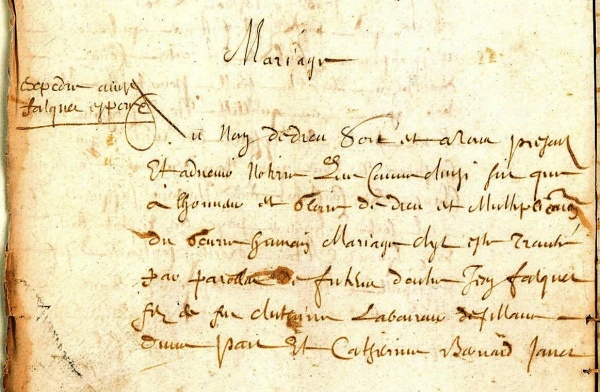 Mariage
expedie
falquet espouse
Au Nom de dieu soit et a tous presens
Et advenir Notoire que comme ainsi soit que
a lhonneur et gloire de dieu et Multiplication
du genre humain Mariage aye este traicté
par parolles de futur d'entre Jean falquet
filz de feu Anthoine Laboureur de
d'une part Et Catherine Bernard